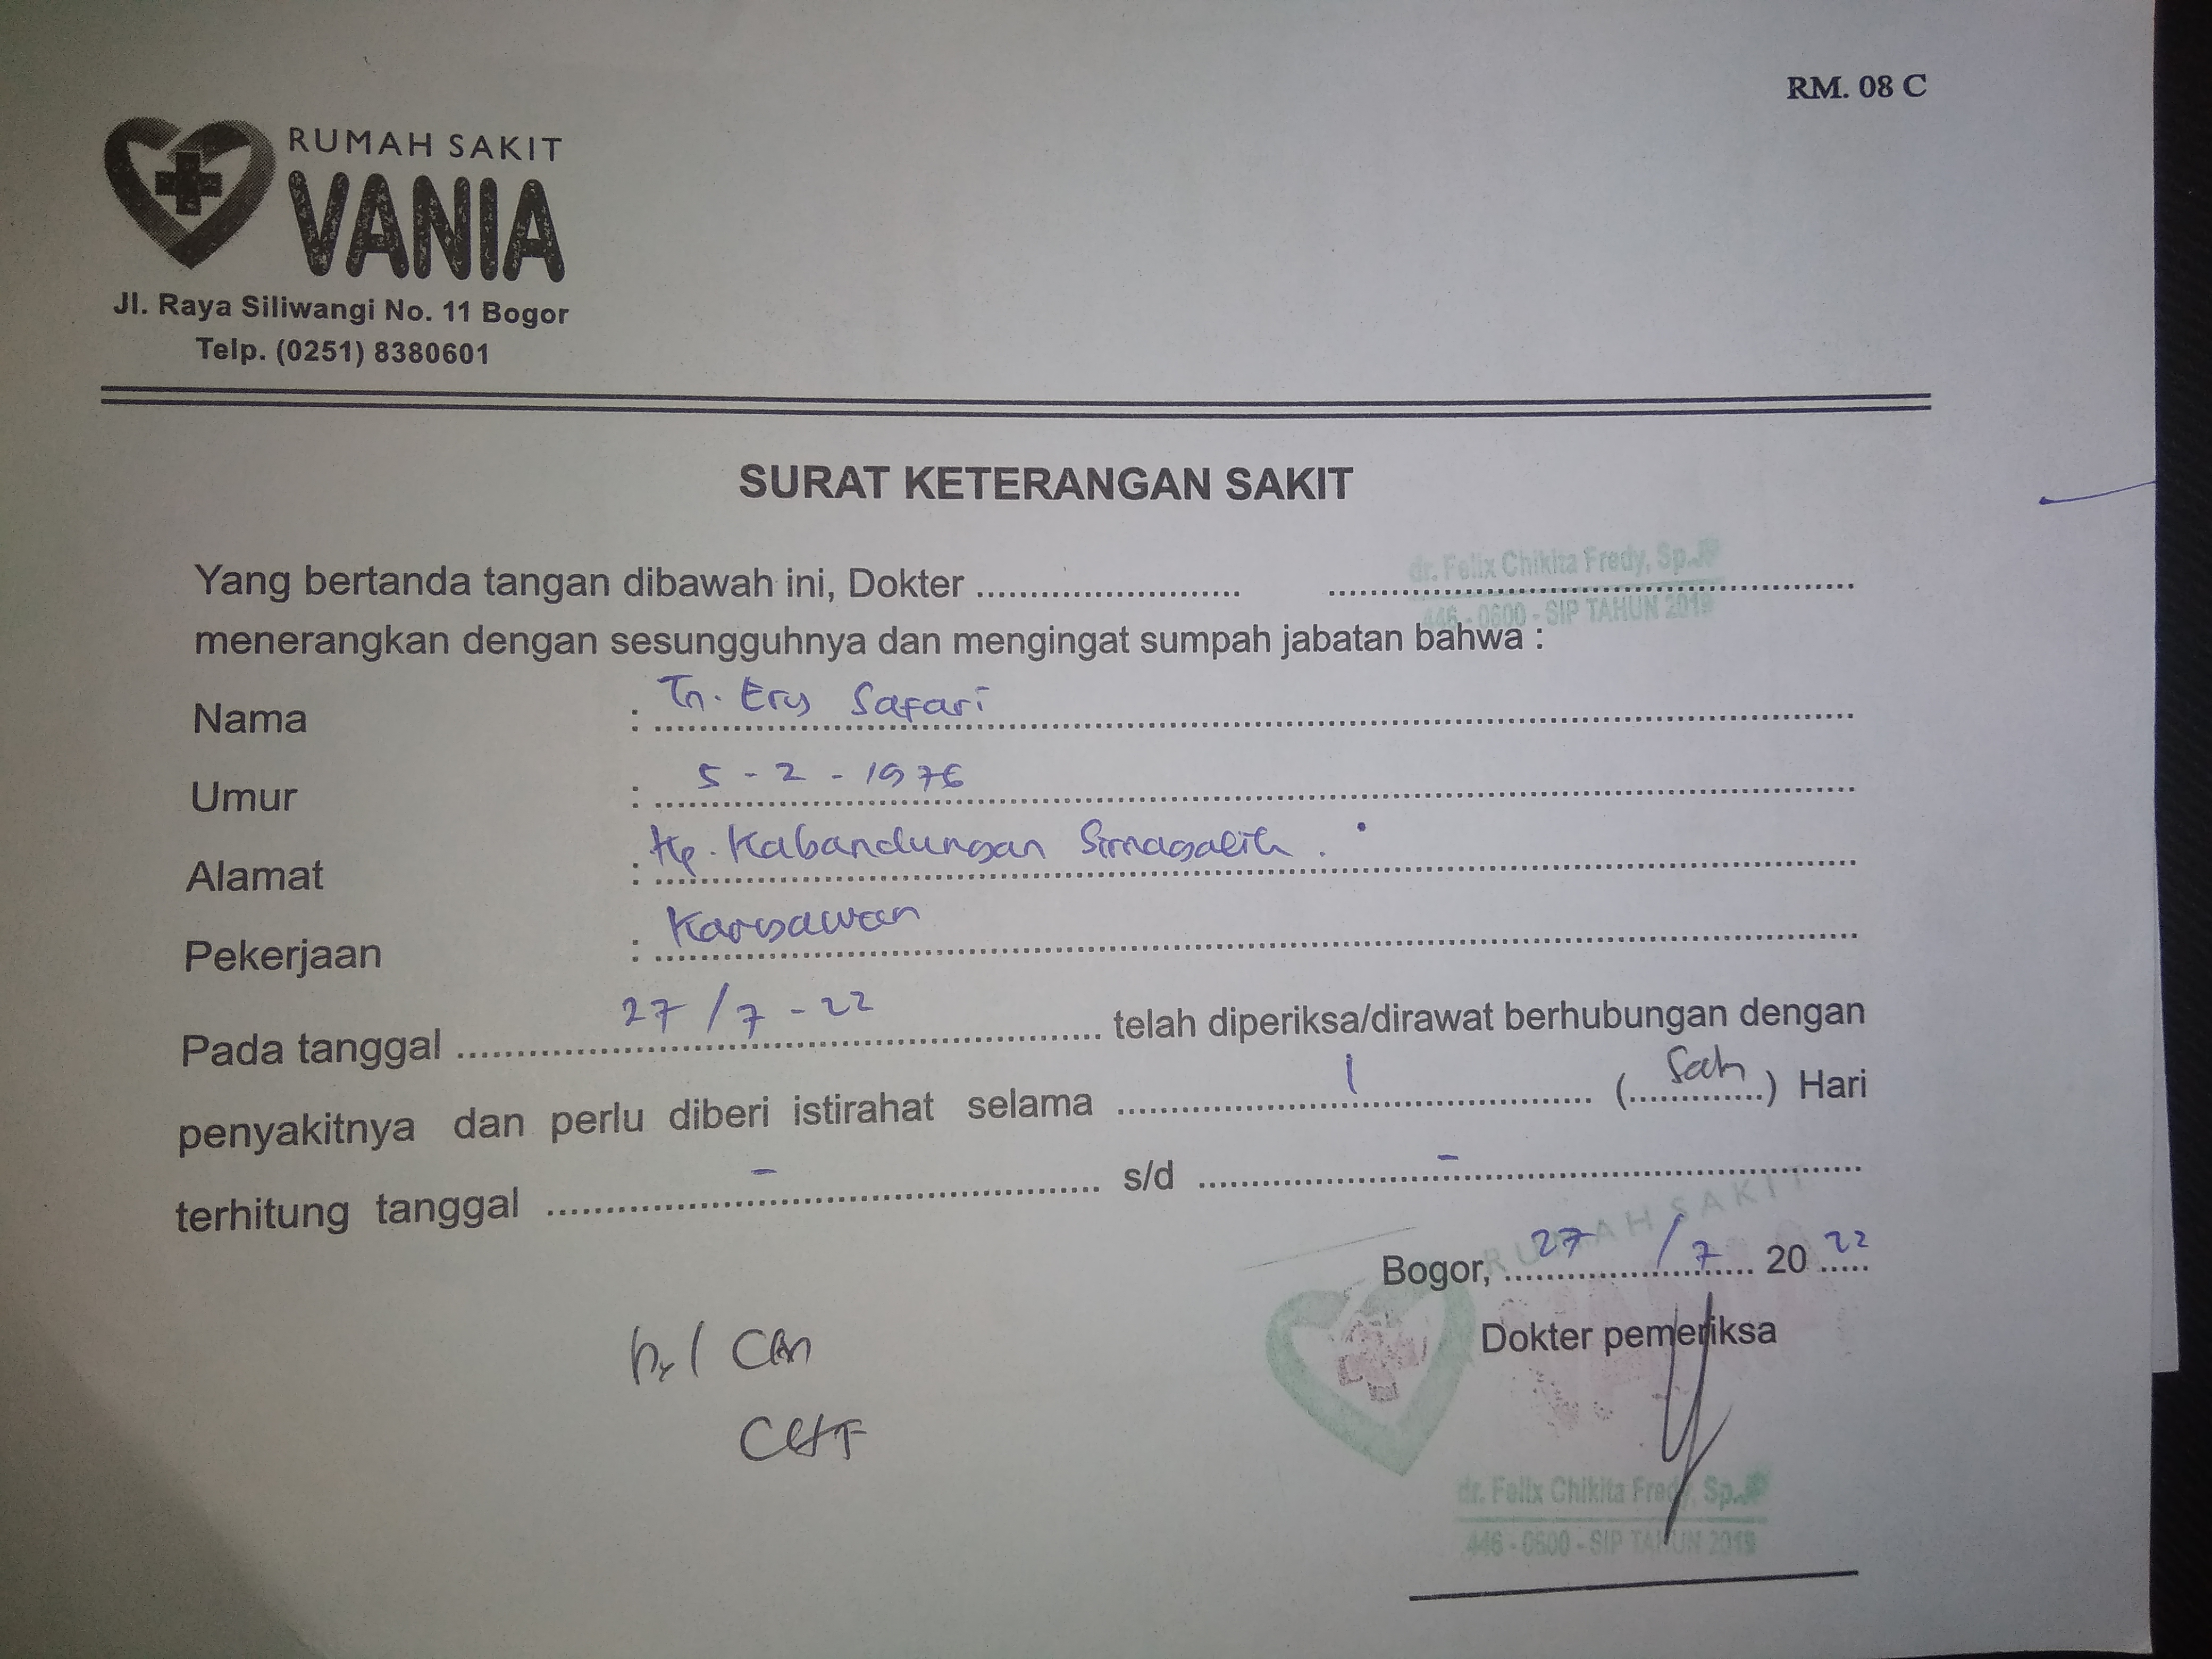 RM. 08 C
RUMAH SAKIT
VANIA
Jl. Raya Siliwangi No. 11 Bogor
Telp. (0251) 8380601
SURAT KETERANGAN SAKIT
Yang bertanda tangan dibawah ini, Dokter ........................ dr. Felix Chikita Fredy, Sp.JP
446 - 0600 - SIP TAHUN 2019
menerangkan dengan sesungguhnya dan mengingat sumpah jabatan bahwa :
Nama : Tn. Ery Safari
Umur : 5 - 2 - 1976
Alamat : Kp. Kabandungan Sirnagalih
Pekerjaan : Karyawan
Pada tanggal 27 / 7 - 22 telah diperiksa/dirawat berhubungan dengan
penyakitnya dan perlu diberi istirahat selama 1 (Satu) Hari
terhitung tanggal - s/d -
RUMAH SAKIT
Bogor, 27 / 7 20 22
Dokter pemeriksa
CHF
dr. Felix Chikita Fredy, Sp.JP
446 - 0600 - SIP TAHUN 2019